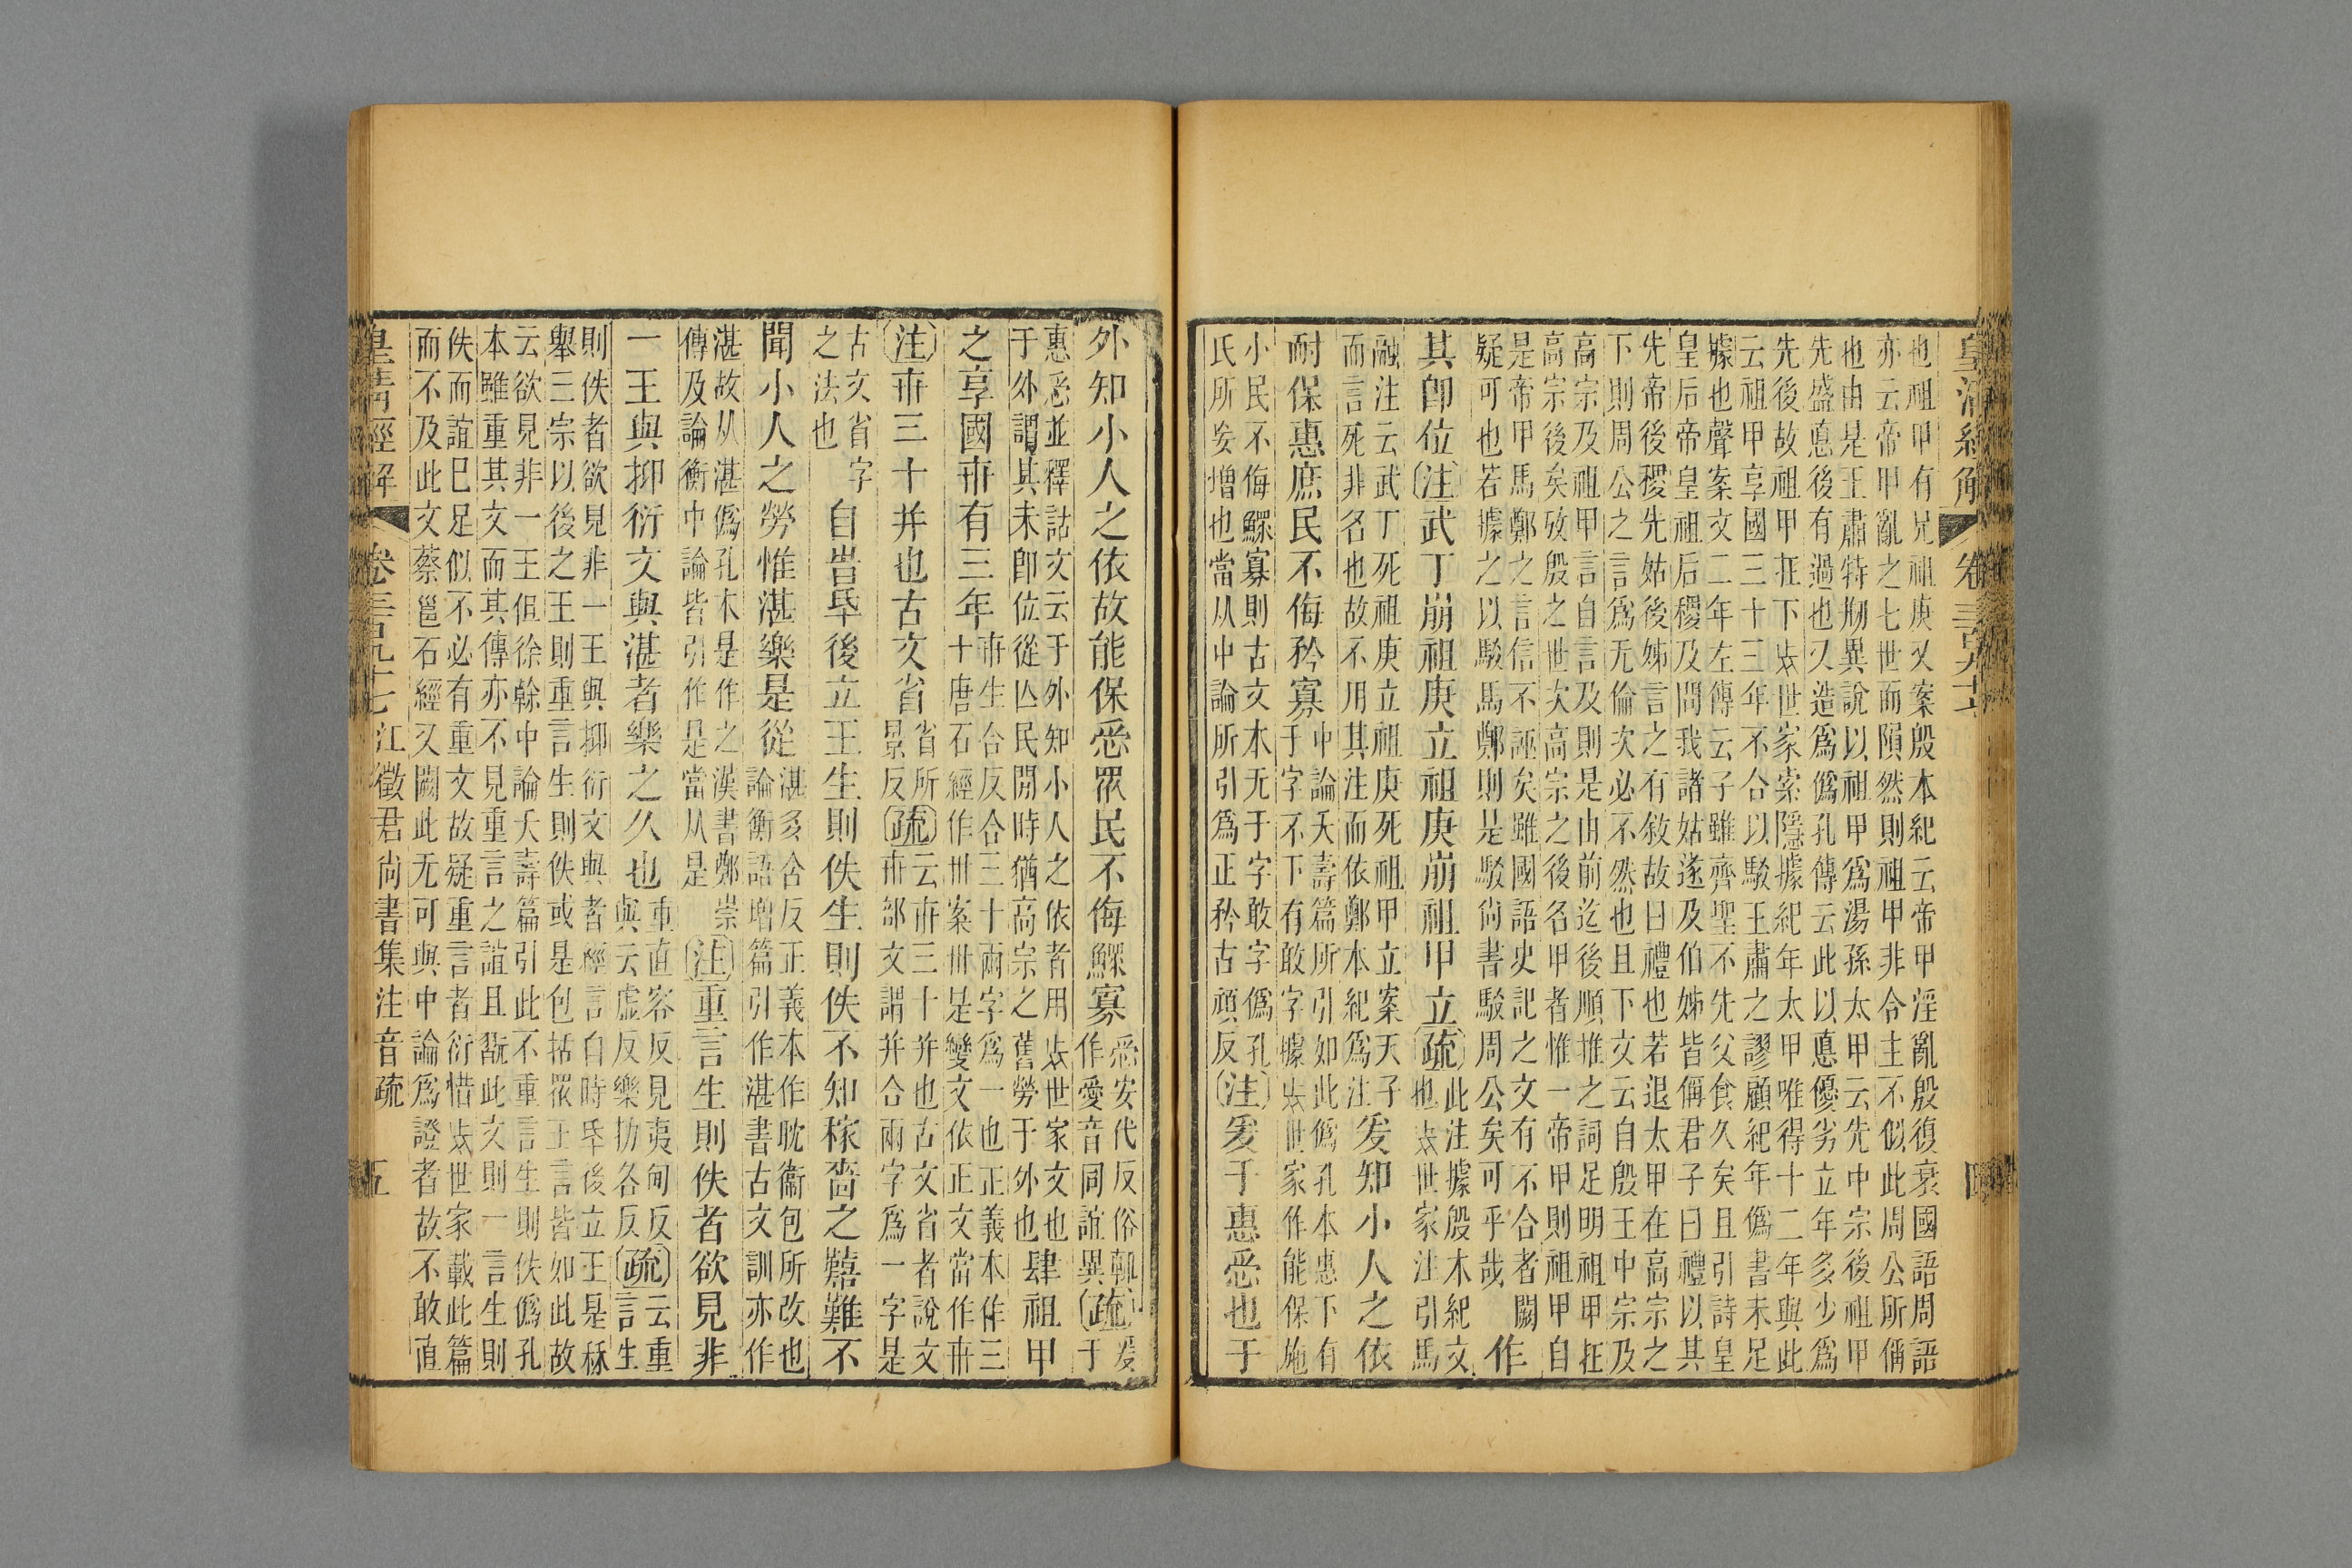 皇清經解 卷三百九十七
也祖甲有兄祖庚又案殷本紀云帝甲淫亂殷復衰國語周語
亦云帝甲亂之七世而隕然則祖甲非合主不似此周公所偁
也由是王肅特刱異說以祖甲爲湯孫太甲云先中宗後祖甲
先盛悳後有過也又造爲僞孔傳云此以悳優劣立年多少爲
先後故祖甲在下𠫓世家索隱據紀年太甲唯得十二年與此
云祖甲享國三十三年不合以駁王肅之謬顧紀年僞書未足
據也聲案文二年左傳云子雖齊聖不先父食久矣且引詩皇
皇后帝皇祖后稷及問我諸姑遂及伯姊皆偁君子曰禮以其
先帝後稷先姑後姊言之有敘故曰禮也若退太甲在高宗之
下則周公之言爲无倫次必不然也且下文云自殷王中宗及
高宗及祖甲言自言及則是由前迄後順推之詞足明祖甲在
高宗後矣攷殷之世次高宗之後名甲者惟一帝甲則祖甲自
是帝甲馬鄭之言信不誣矣雖國語史記之文有不合者闕
疑可也若據之以駁馬鄭則是駁尙書駁周公矣可乎哉
作
其卽位注武丁崩祖庚立祖庚崩祖甲立疏
此注據殷本紀文
也𠫓世家注引馬
融注云武丁死祖庚立祖庚死祖甲立案天子
而言死非名也故不用其注而依鄭本紀爲注
爰知小人之依
耐保惠庶民不侮矜寡
中論夭壽篇所引如此僞孔本惠下有
于字不下有敢字據𠫓世家作能保施
小民不侮鰥寡則古文本无于字敢字僞孔
氏所妄增也當从中論所引爲正矜古頑反
注爰于惠㤅也于
外知小人之依故能保㤅眾民不侮鰥寡
㤅安代反俗
作愛音同誼異
疏
爰
于
惠㤅並釋詁文云于外知小人之依者用𠫓世家文也
于外謂其未卽位從亾民閒時猶高宗之舊勞于外也
肆祖甲
之享國卋有三年
卋生合反合三十兩字爲一也正義本作三
十唐石經作卅案卅是變文依正文當作卋
注卋三十并也古文省
省所
景反
疏
云卋三十并也古文省者說文
卋部文謂并合兩字爲一字是
古文省字
之法也
自旹氒後立王生則佚生則佚不知稼嗇之囏難不
聞小人之勞惟湛樂是從
湛多含反正義本作耽衞包所改也
論衡語增篇引作湛書古文訓亦作
湛故从湛僞孔本是作之漢書鄭崇
傳及論衡中論皆引作是當从是
注重言生則佚者欲見非
一王與抑衍文與湛者樂之久也
重直容反見夷甸反
與云虚反樂扐各反
疏
云重
言生
則佚者欲見非一王與抑衍文與者經言自時氒後立王是秝
舉三宗以後之王則重言生則佚或是包括眾王言皆如此故
云欲見非一王但徐榦中論夭壽篇引此不重言生則佚僞孔
本雖重其文而其傳亦不見重言之誼且翫此文則一言生則
佚而誼已足似不必有重文故疑重言者衍惜𠫓世家載此篇
而不及此文蔡邕石經又闕此无可與中論爲證者故不敢直
皇清經解 卷三百九十七 江徵君尙書集注音疏 五